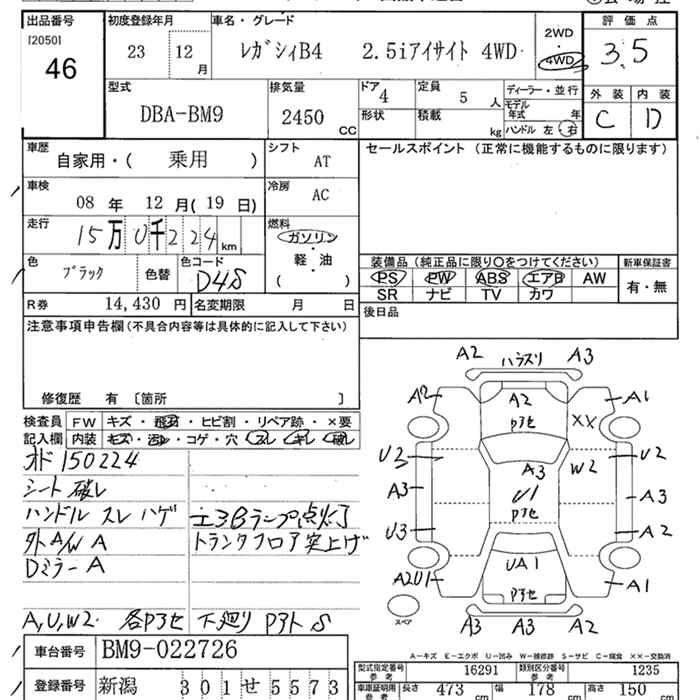 出品番号 初度登録年月 車名・グレード 評価点
[2050] 46 23 12 月 レガシィB4 2.5iアイサイト 4WD 2WD ・ 4WD 3.5
型式 排気量 ドア 定員 ディーラー・並行 外装 内装
DBA-BM9 2450 CC 4 5 人 モデル年式 年 C D
形状 積載 kg ハンドル 左 右
車歴 シフト セールスポイント (正常に機能するものに限ります)
自家用・( 乗用 ) AT
車検 冷房
08 年 12 月( 19 日) AC
走行 燃料
15万0千224 km ガソリン
・
軽・油
( )
色 色コード 装備品(純正品に限り○をつけてください) 新車保証書
ブラック 色替 D4S PS PW ABS エアB AW 有・無
SR ナビ TV カワ
R券 14,430 円 名変期限 月 日 後日品
注意事項申告欄(不具合内容等は具体的に記入して下さい)
修復歴 有 [箇所 ]
検査員 FW キズ・飛石・ヒビ割・リペア跡・×要
記入欄 内装 キズ・汚レ・コゲ・穴・スレ・キレ・破レ
オド150224
シート 破レ
ハンドル スレ ハゲ エアBランプ点灯
外A/W A トランクフロア突上げ
Dミラー A
A,U,W2 各Pアセ 下廻り Pアト S
車台番号 BM9-022726
登録番号 新潟 301 せ 5573
A2 ハラスリ A3
A2 A2 A1
Pアセ XX
U2 A3 W2 U2
A3 U1 A3
Pアセ
U3 A2
A2U1 UA1 A1
Pアセ
スペア A3 A3 A2
A-キズ E-エクボ U-凹み W-補修跡 S-サビ C-腐食 XX-交換済
型式指定番号 参考 16291 類別区分番号 参考 1235
車庫証明用 参考 長さ 473 cm 幅 178 cm 高さ 150 cm